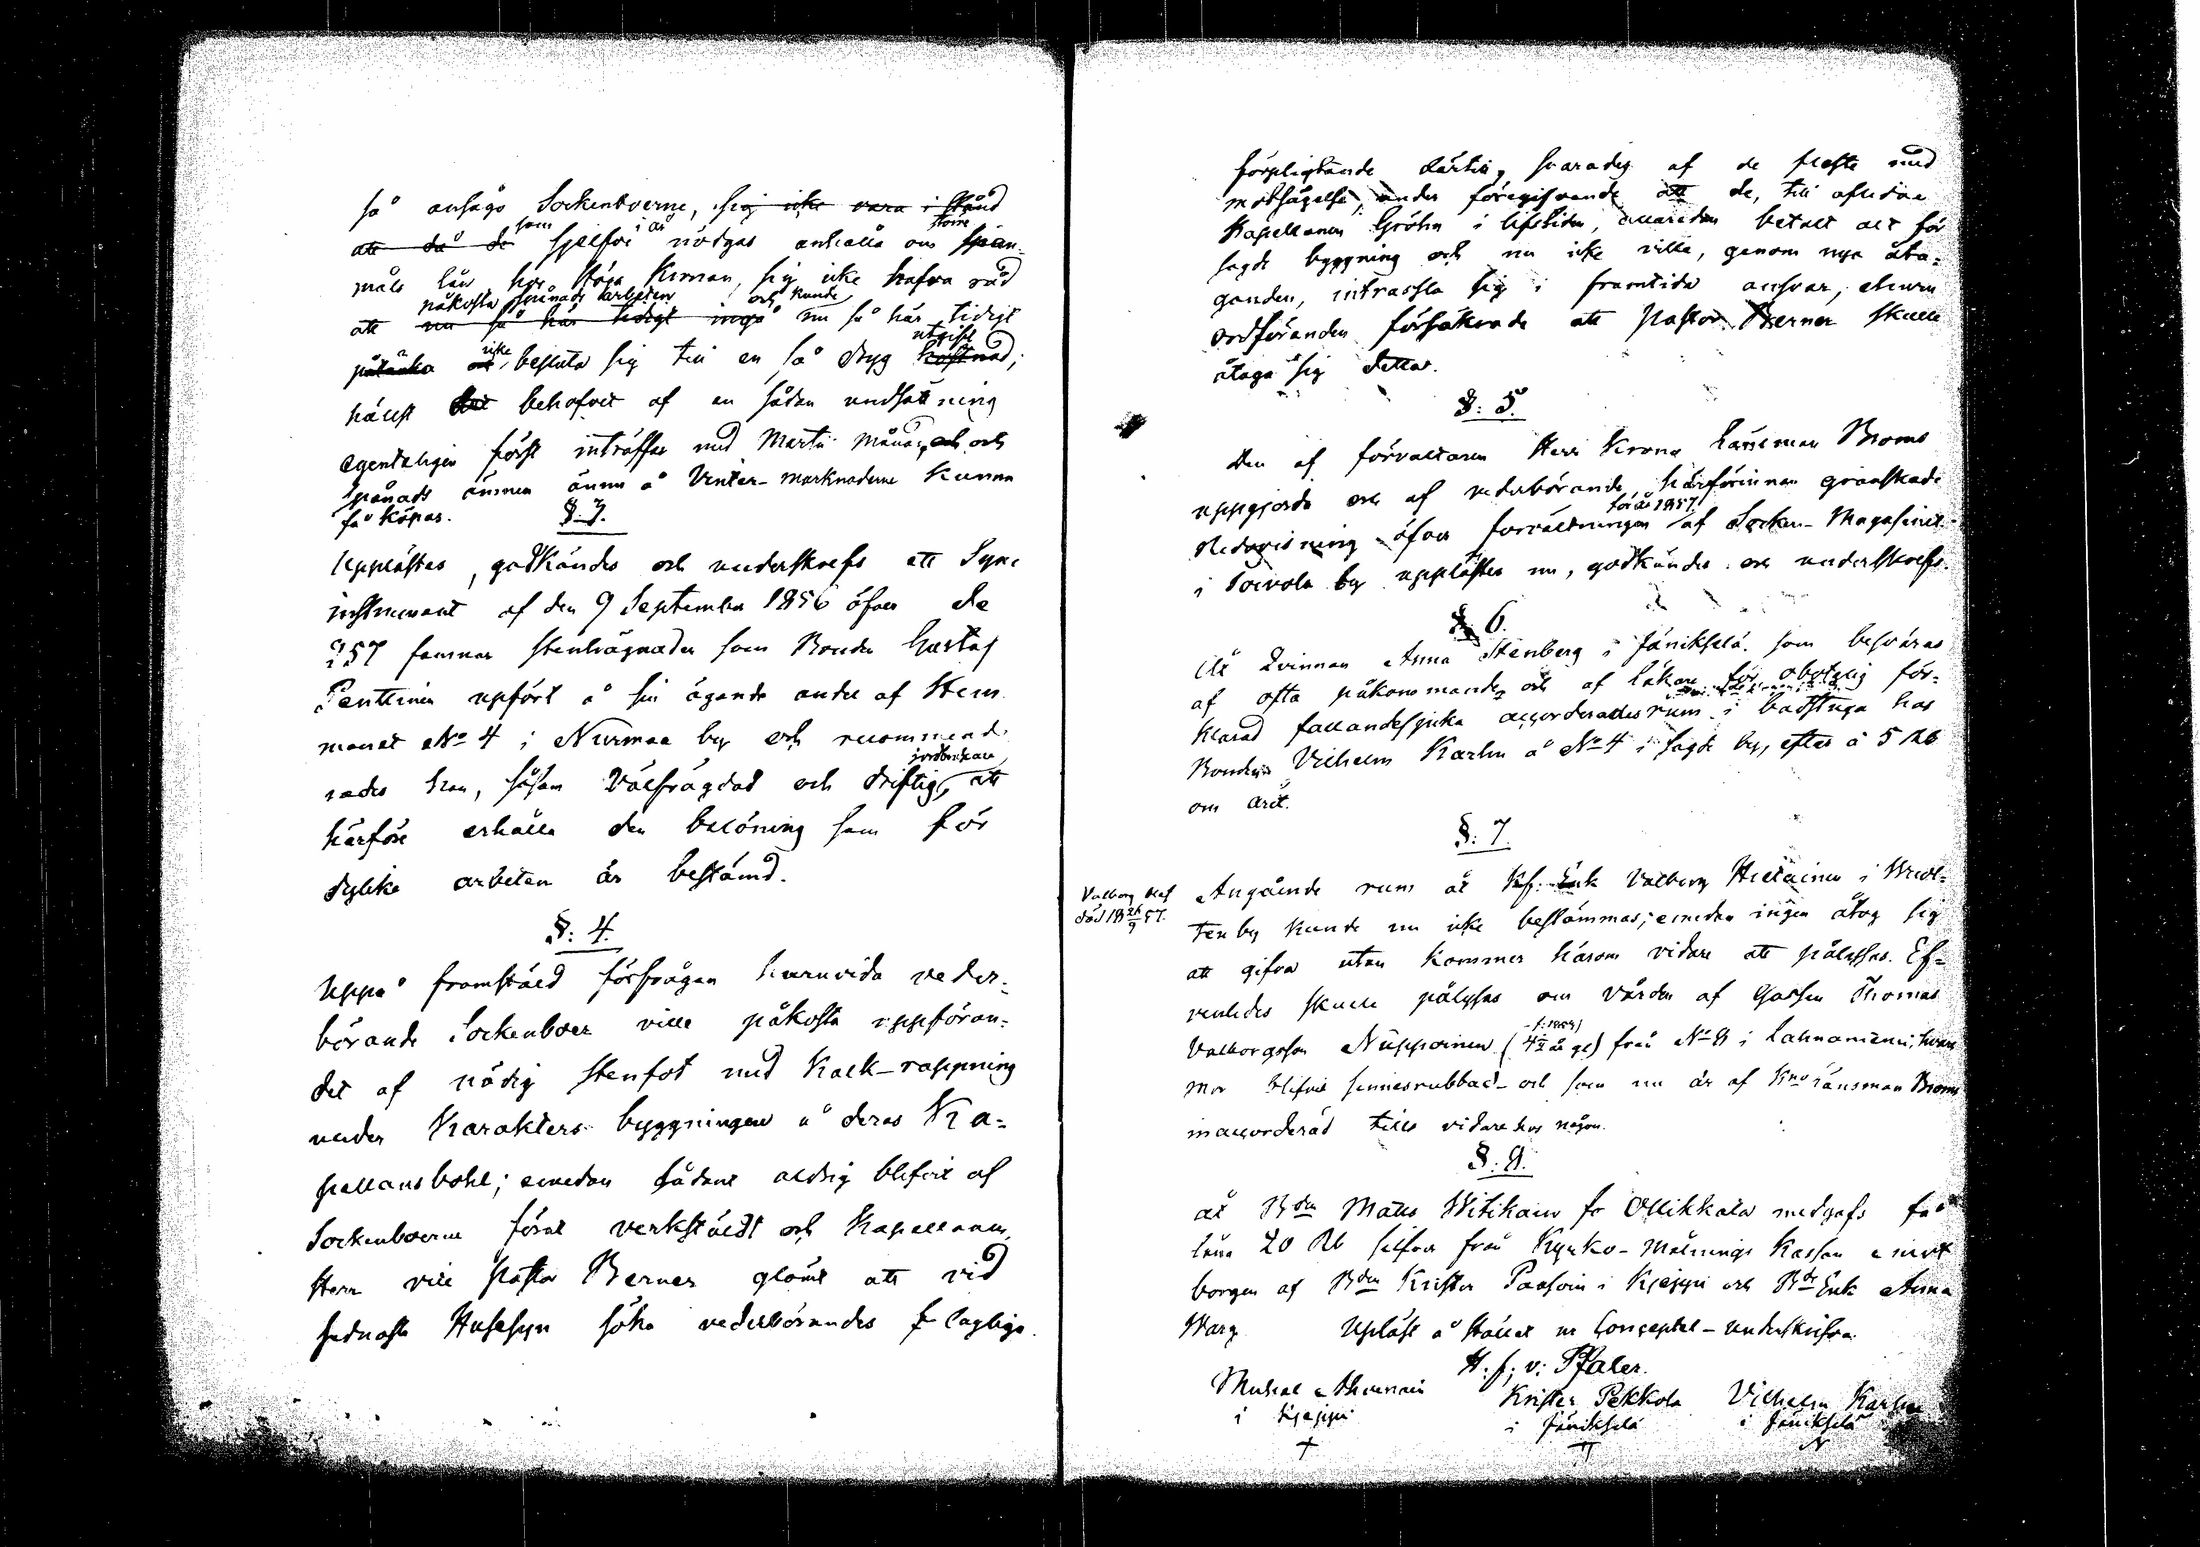 så ansågo Sockenboerne, sig icke vara i stånd
att då de som sjelfve i år nödgas anhålla om större span-
måls lån hos Höga Kronan, sig icke hafva råd
att nu så här tidigt ingå påkosta spånads arbeten och kunde nu så här tidigt
påtänka icke besluta sig till en så dryg kostnad utgift;
hälst behofvet af en sådan undsättning
egentligen först inträffar med Martii månad, och
spånads ämnen ännu å Vinter-marknaderne kunna
få köpas.
§. 3.
Upplästes, godkändes och underskrefs ett Syne
instrument af den 9 September 1856 öfver de
257 famnar stenhägnader som Bonden Gustaf
Penttinen upfört å sin ägande andel af Hem-
manet No 4 i Nurmaa by och recommende-
rades han, såsom Välfrägdad och driftig jordbrukare, att
härföre erhålla den belöning som för
dylika arbeten är bestämd.
§. 4.
Uppå framstäld förfrågan huruvida veder-
börande Sockenboer ville påkosta uppföran-
det af nödig stenfot med Kalk-rappning
under Karakters byggningen å deras Ka-
pellansbohl; emedan sådant aldrig blifvit af
Sockenboerne förut verkstäldt och Kapellanen,
Herr vice Pastor Berner glömt att vid
sednaste Husesyn söka vederbörandes laglige
förpligtande därtill, svarades af de fleste med
motsägelse, under föregifvande att de, till aflidne
Kapellanen Gröhn i lifstiden, allaredan betalt alt för
sagde byggning och nu icke ville, genom nya åta-
ganden, intrassla sig i framtida ansvar, churu
ordföranden försäkrade att Pastor Berner skulle
åtaga sig detta.
§. 5.
Den af förvaltaren Herr Krono Länsman Broms
uppgjorde och af vederbörande härförinnan granskade
Redovisning öfver förvaltningen för år 1857 af Socken-Magasinet
i Toivola by upplästes nu, godkändes och underskrefs.
§ 6.
Åt Qvinnan Anna Stenberg i Jänikselä som besväras
af ofta påkommande och af läkare för obotelig för-
klarad fallandesjuka accorderades rum i badstuga hos
Bonden Vilhelm Karhu å No 4 i sagde by, efter à 5 Rb
om året.
§. 7.
Valborg Hiet
död 18 26/9 57.
Angående rum åt Kf. Enk Valborg Hietainen i
tenby kunde nu icke bestämmas; emedan ingen åtog sig
att gifva utan kommer härom vidare att pålysas. Ef-
venledes skulle pålysas om vården af Gossen Thomas
Valborgsson Nuppoinen (4½ år gl) från No 8 i Lahnaniemi, hvars
mor blifvit sinnesrubbad och som nu är af Kno Länsman Broms
inaccorderad tills vidare hos någon.
§. 8.
åt Bden Matts Witikain fr Ollikkala medgafs få
låna 20 Rb silfver från Kyrko-Målnings Kassan emot
borgen af Bden Krister Paasoin i Kjeppi och Bde Enk Anna
Warg Upläst å stället ur Conceptet-underskrifva.
H. f; v: Pfaler.
Mickel
i Kjeppi
+
Krister Pekkola
i Jäniksela
Vilhelm Karhu
i Jäniksela